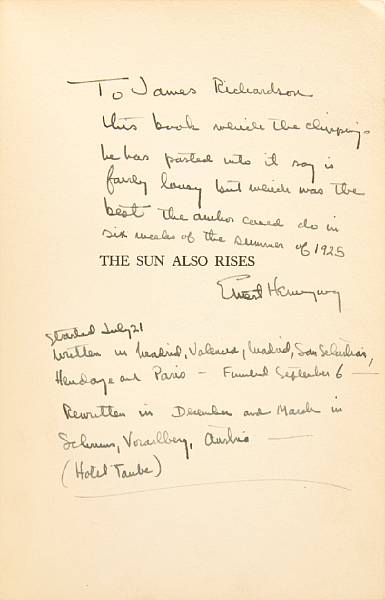 To James Richardson
this book which the clippings
he has pasted into it say is
fairly lousy but which was the
best the author could do in
six weeks of the summer of 1925
THE SUN ALSO RISES
Ernest Hemingway
Started July 21
written in Madrid, Valencia, Madrid, San Sebastian,
Hendaye and Paris — Finished September 6 —
Rewritten in December and March in
Schruns, Vorarlberg, Austria —
(Hotel Taube)